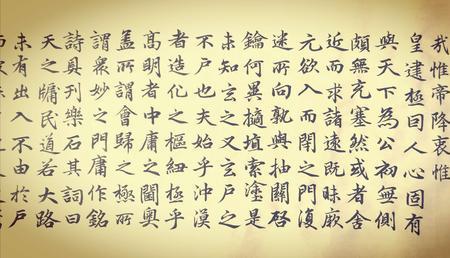 我惟帝降衷惟
皇建極曰人心固有
與天下為公初無側
頗無充塞然或者舍
近而求諸遠既昧厥
元欲入而閉之門復
迷所向孰與抽關啓
鑰何異擿埴索塗是
未知玄之又玄戶之
不戶也夫始乎沖漠
者造化之樞紐極乎
髙明者中庸之閫奧
蓋所謂會歸之極所
謂衆妙之門庸作銘
詩具刊樂石其詞曰
天之牖民道若大路
未有出入不由於戶